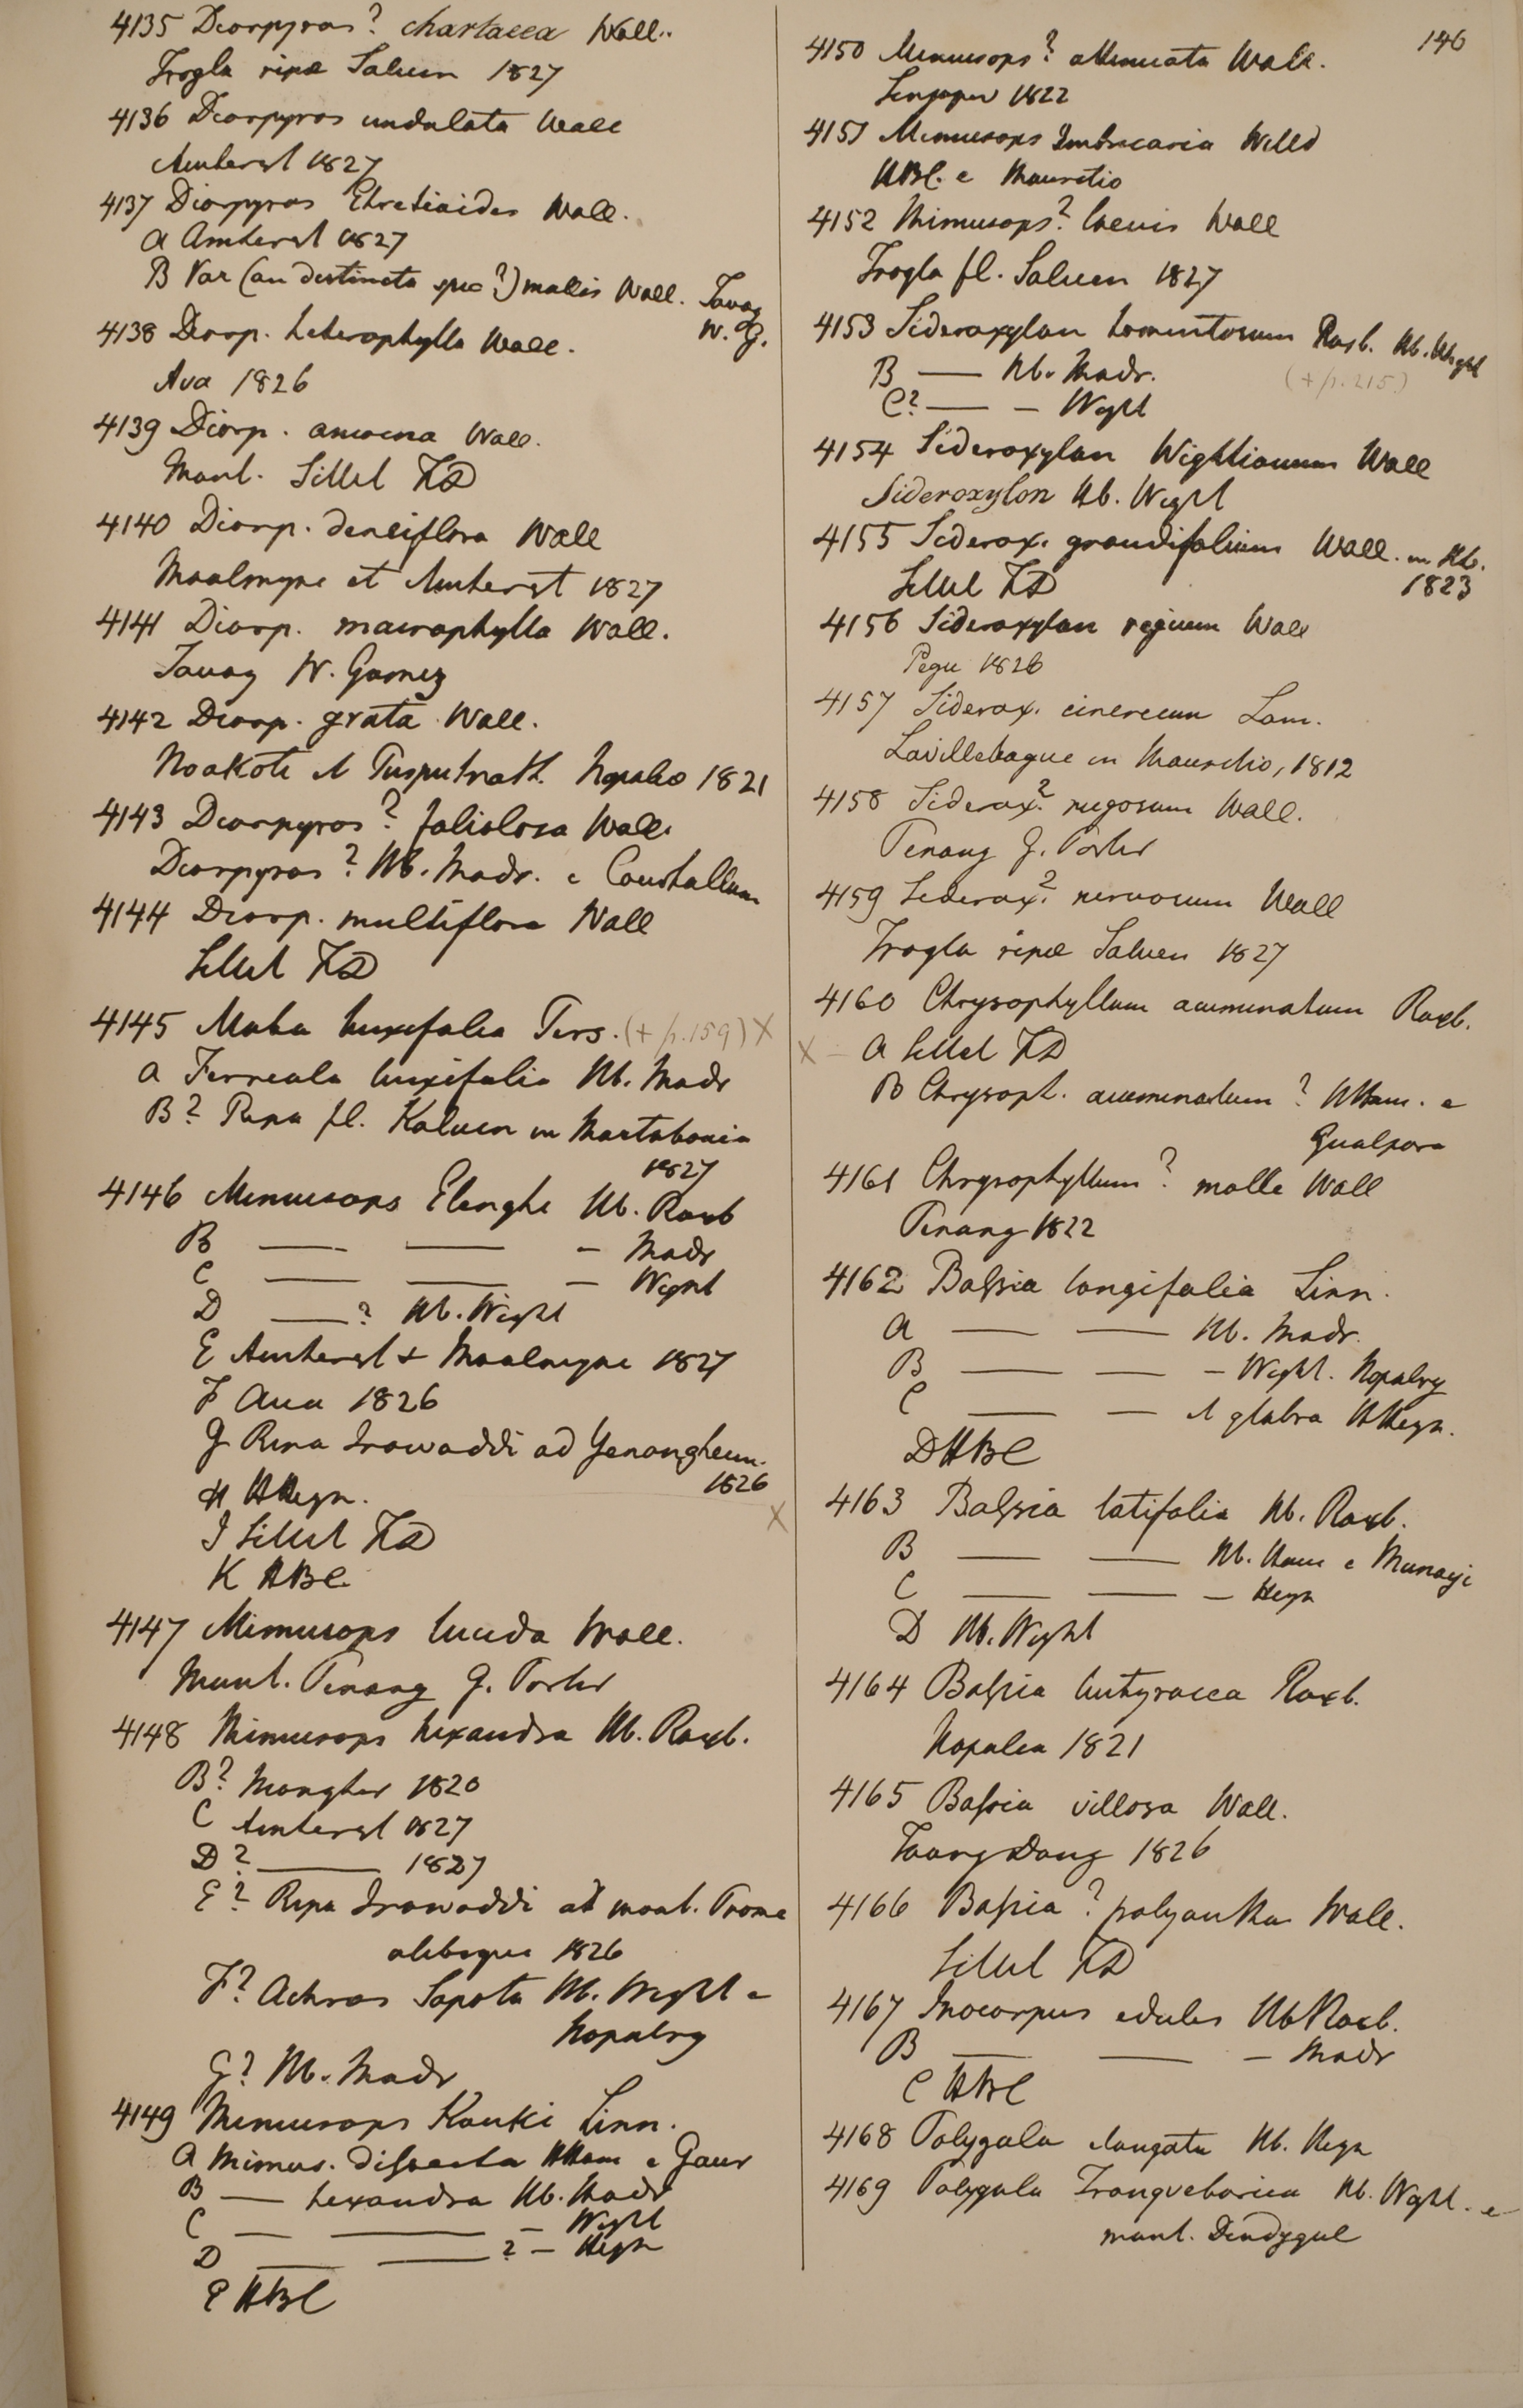 146
4135 Diospyros? chartacea Wall.
Trogla ripæ Saluen 1827
4136 Diospyros undulata Wall
Amherst 1827
4137 Diospyros Ehretioides Wall.
a Amherst 1827
B Var (an distincta spec?) mollis Wall. Tavoy
W. G.
4138 Diosp. heterophylla Wall.
Ava 1826
4139 Diosp. amoena Wall.
Mont. Sillet FD
4140 Diosp. densiflora Wall
Moalmyne et Amherst 1827
4141 Diosp. macrophylla Wall.
Tavoy W. Gomez
4142 Diosp. grata Wall.
Noakote et Puspuhnath Napalio 1821
4143 Diospyros? foliolosa Wall.
Diospyros? Hb. Madr. e Courtallum
4144 Diosp. multiflora Wall
Sillet FD
4145 Maba buxifolia Pers. (+ p. 159) X
a Ferreola buxifolia Hb. Madr
B? Ripa fl. Saluen in Martabania
1827
4146 Mimusops Elenghi Hb. Roxb
B — — - Madr
C — — - Wight
D —? Hb. Wight
E Amherst + Moalmyne 1827
F Ava 1826
G Ripa Irawaddi ad Yenangheum.
1826
H HRegn.
X
I Sillet FD
K HBC.
4147 Mimusops lucida Wall.
Mont. Penang G. Porter
4148 Mimusops hexandra Hb. Roxb.
B? Mongher 1820
C Amherst 1827
D? — 1827
E? Ripa Irawaddi ad mont. Prome
alibique 1826
F? Achras Sapota Hb. Wight e
Nopalry
G? Hb. Madr
4149 Mimusops Kauki Linn.
a Mimus. dissecta HHam e Gaur
B — hexandra Hb. Madr
C — — - Wight
D — — ? - Heyn
E HBC
4150 Mimusops? attenuata Wall.
Singapur 1822
4151 Mimusops Imbricaria Willd
HBC. e Mauritio
4152 Mimusops? laevis Wall
Trogla fl. Saluen 1827
4153 Sideroxylon tomentosum Roxb. Hb. Wight
B — Hb. Madr.
(+ p. 215)
C? — - Wight
4154 Sideroxylon Wightianum Wall
Sideroxylon Hb. Wight
4155 Siderox. grandifolium Wall. in Hb.
1823
Sillet FD
4156 Sideroxylon regium Wall
Pegu 1826
4157 Siderox. cinereum Lam.
Lavillebague in Mauritio, 1812
4158 Siderox.? rugosum Wall.
Penang G. Porter
4159 Siderox.? nervosum Wall
Trogla ripæ Saluen 1827
4160 Chrysophyllum acuminatum Roxb.
X - a Sillet FD
B Chrysoph. acuminatum? HHam. e
Gualpara
4161 Chrysophyllum? molle Wall
Penang 1822
4162 Bassia longifolia Linn.
a — — Hb. Madr.
B — — - Wight. Nopalry
C — - et glabra HHeyn.
D HBC
4163 Bassia latifolia Hb. Roxb.
B — — Hb. Ham e Munayi
C — — - Heyn
D Hb. Wight
4164 Bassia butyracea Roxb.
Napalia 1821
4165 Bassia villosa Wall.
Taong Dong 1826
4166 Bassia? polyantha Wall.
Sillet FD
4167 Inocarpus edulis Hb Roxb.
B — — - Madr
C HBC
4168 Polygala elongata Hb. Heyn
4169 Polygala Tranquebarica Hb. Wight. e
mont. Dindygul